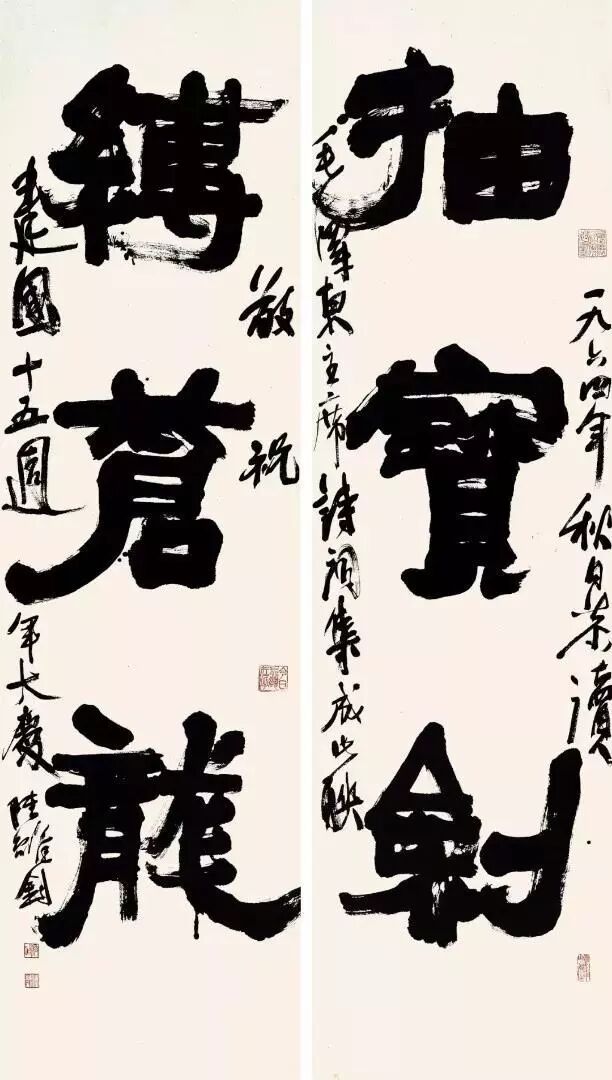 一九六四年秋日恭讀
抽寶劍
毛澤東主席詩詞集成此聯
敬祝
縛蒼龍
建國十五週年大慶 陸維釗